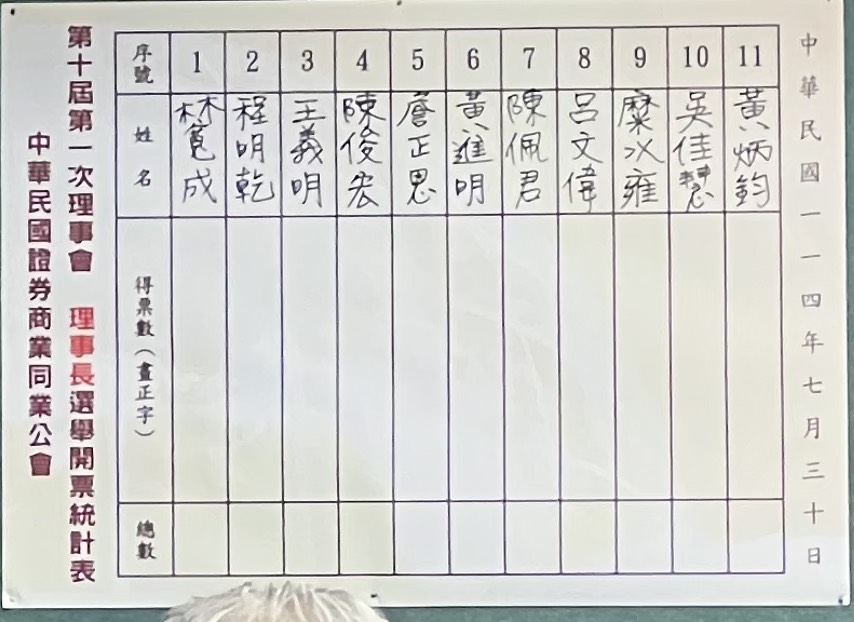 中華民國證券商業同業公會
第十屆第一次理事會 理事長選舉開票統計表
序號 1 2 3 4 5 6 7 8 9 10 11
姓名 林寬成 程明乾 王義明 陳俊宏 詹正恩 黃進明 陳佩君 呂文偉 糜以雍 吳佳 黃炳鈞
得票數(畫正字)
總數
中華民國一一四年七月三十日